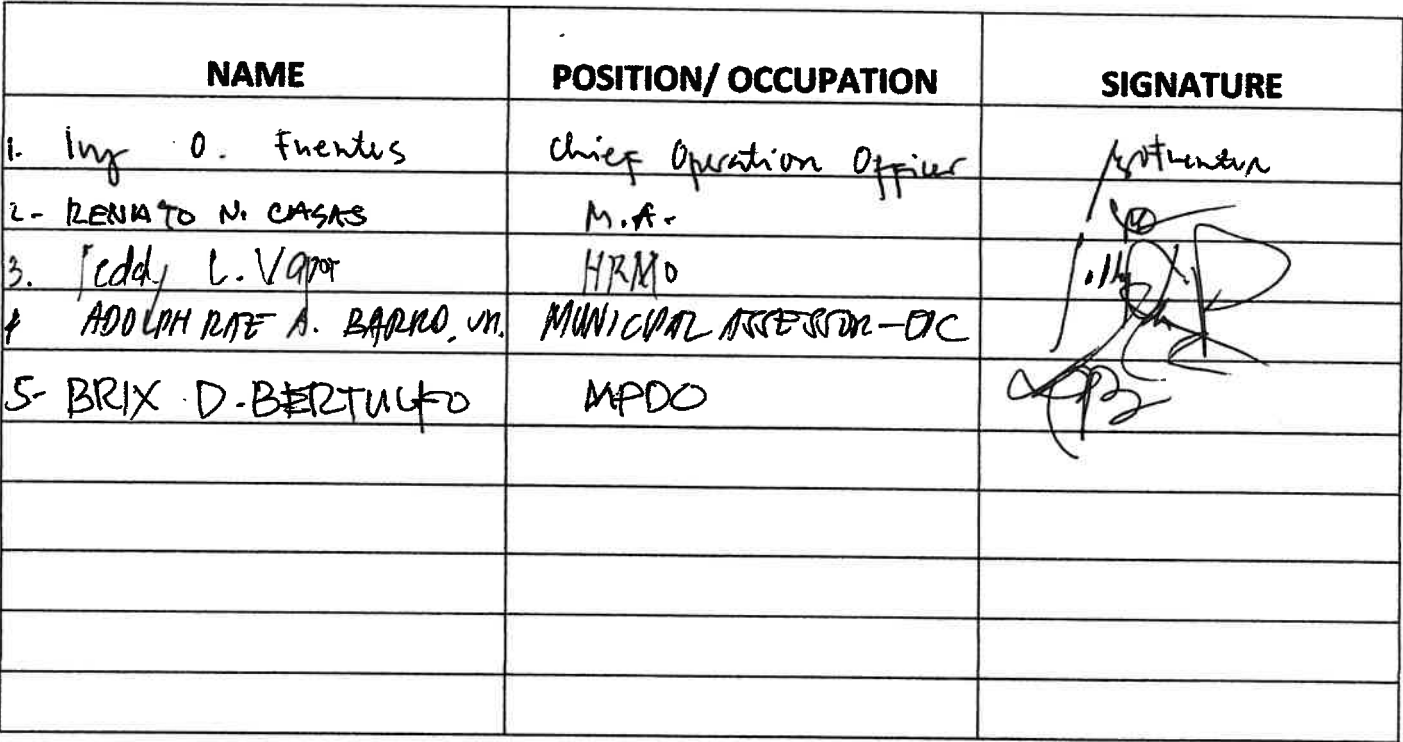 NAME POSITION/ OCCUPATION SIGNATURE
1. O. Fuentes Chief Operation Officer
2- RENATO N. CASAS M.A.
3. Teddy L. HRMO
ADOLPH RAE A. BARRO, JR. MUNICIPAL ASSESSOR-OIC
5- BRIX D. BERTULFO MPDO